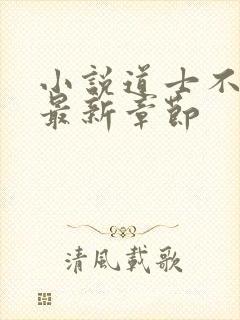 小說道士不
最新章節
清風載歌